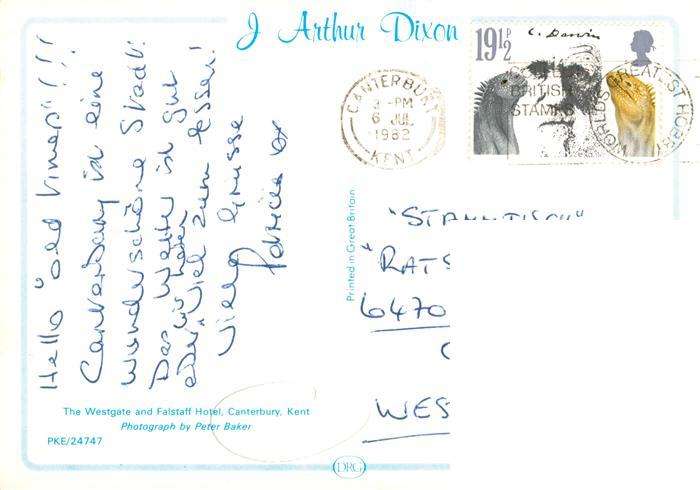 J Arthur Dixon
19½P
C. Darwin
CANTERBURY
3-PM
6 JUL
1982
KENT
BRITISH
STAMPS
WORLDS GREATEST HOBBY
Hello "old
Canterbury ist eine
wunderschöne Stadt!
Das Wetter ist gut
wir haben
viel zum Essen!
Viele Grüsse
Patricia xx
Printed in Great Britain
"STAMMTISCH"
"RATS
6470
WES
The Westgate and Falstaff Hotel, Canterbury, Kent
Photograph by Peter Baker
PKE/24747
DRG